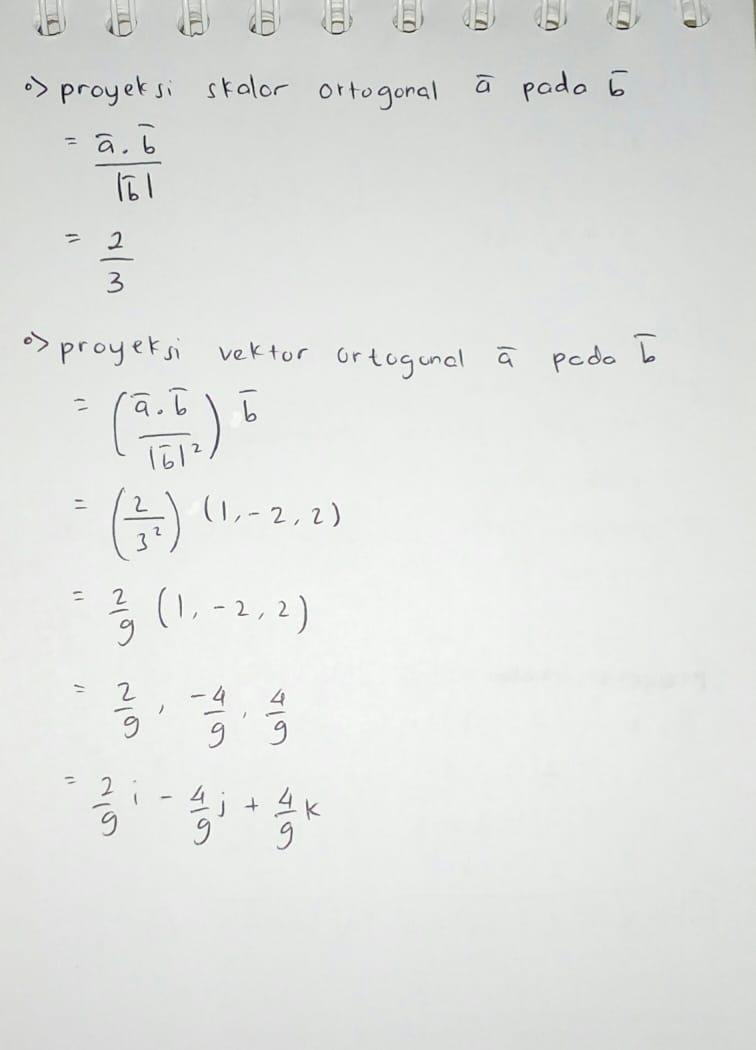 •> proyeksi skalar ortogonal ā pada b̄
= ā . b̄
|b̄|
= 2
3
•> proyeksi vektor ortogonal ā pada b̄
= (ā . b̄ / |b̄|²) b̄
= (2 / 3²) (1, -2, 2)
= 2/9 (1, -2, 2)
= 2/9 , -4/9 , 4/9
= 2/9 i - 4/9 j + 4/9 k